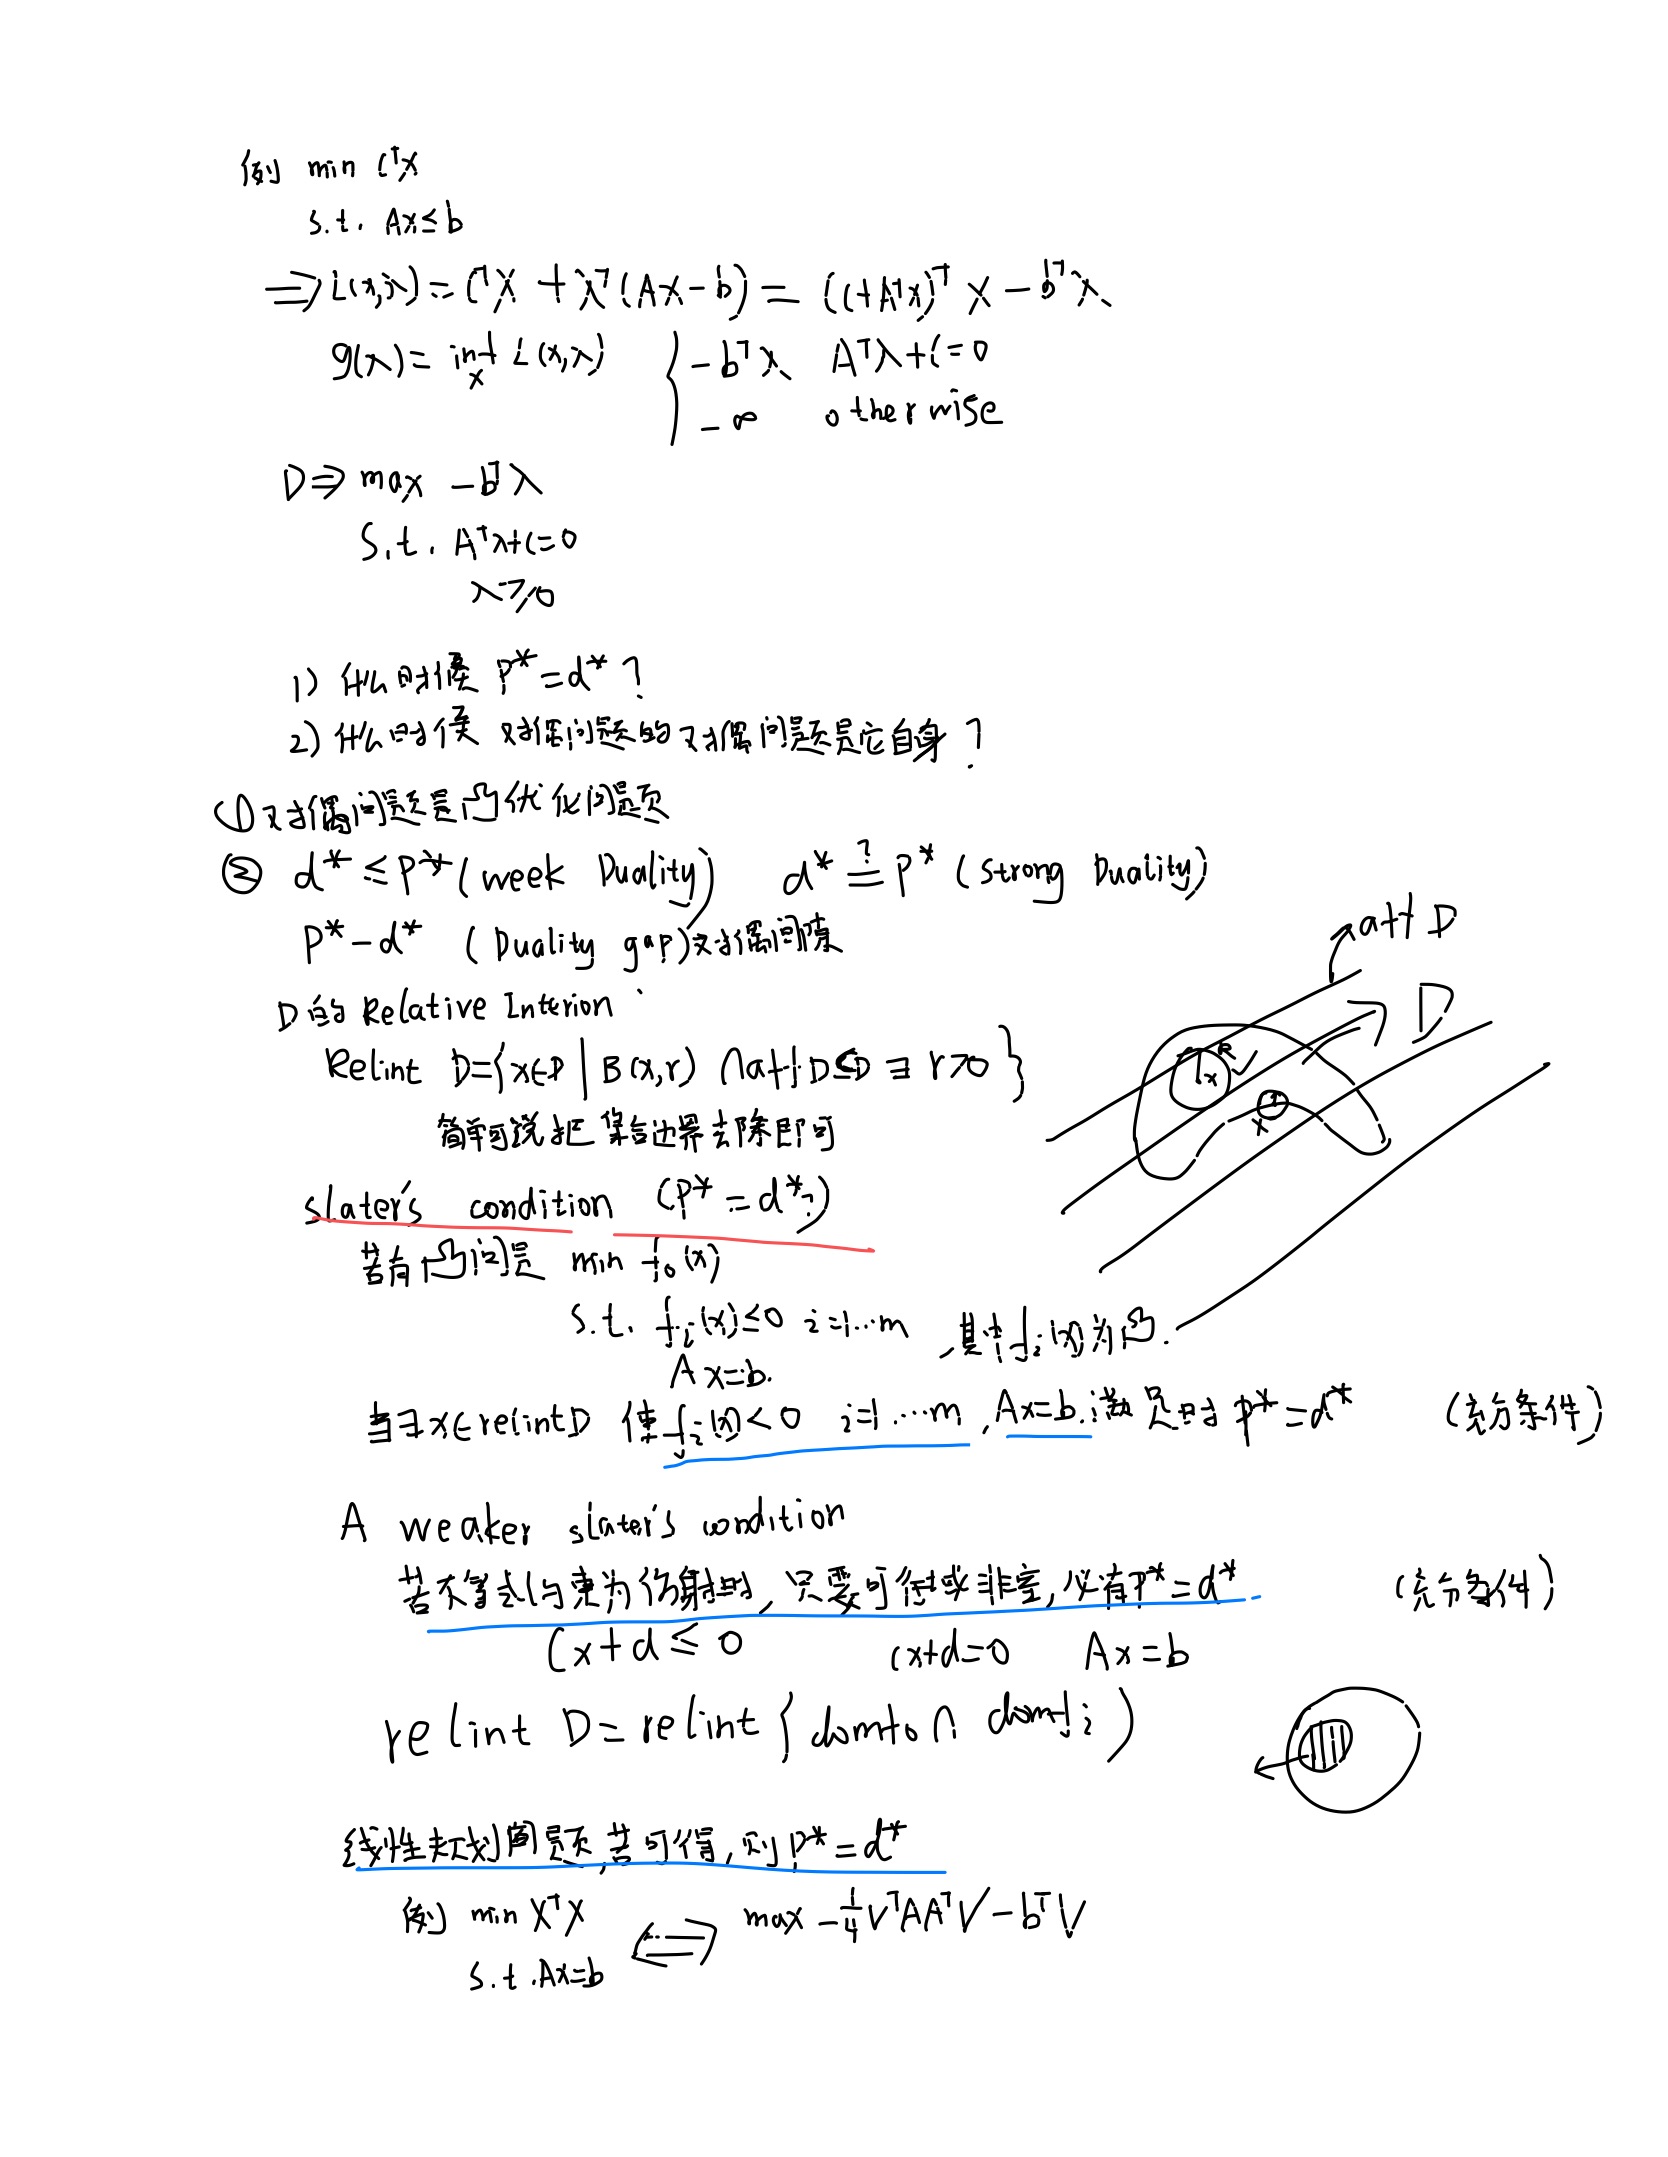 例 min cᵀx
s.t. Ax≤b
⇒ L(x,λ) = cᵀx + λᵀ(Ax-b) = (c+Aᵀx)ᵀ x - bᵀλ
g(λ) = inf L(x,λ) { -bᵀλ Aᵀλ+c=0
x
-∞ otherwise
D⇒ max -bᵀλ
s.t. Aᵀλ+c=0
λ≥0
1) 什么时候 P*=d* ?
2) 什么时候 对偶问题的对偶问题是它自身?
① 对偶问题是凸优化问题
② d* ≤ P* (week Duality) d* ≟ P* (Strong Duality)
P*-d* (Duality gap) 对偶间隙
aff D
D
D的 Relative Interion:
Relint D={x∈D | B(x,r) ∩aff D⊆D ∃ r>0 }
R
x
x
简单可说把集合边界去除即可
slater's condition (P*=d*?)
若有凸问题 min f₀(x)
s.t. fᵢ(x)≤0 i=1…m ,其中fᵢ(x)为凸.
Ax=b.
当∃x∈relint D 使fᵢ(x)<0 i=1…m , Ax=b.满足时 P*=d* (充分条件)
A weaker slater's condition
若不等式约束为仿射时, 只要可行域非空, 必有P*=d* (充分条件)
Cx+d≤0 cx+d=0 Ax=b
relint D=relint { domf₀∩ domfᵢ )
线性规划问题,若可得,则P*=d*
例 min xᵀx ⟺ max -1/4 VᵀAAᵀV - bᵀV
s.t. Ax=b